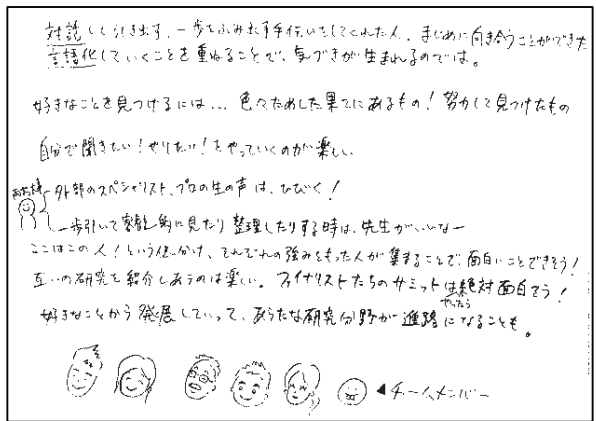 対話しながら引き出す、一歩をふみ出す手伝いをしてくれた人、まじめに向き合うことができた
言語化していくことを重ねることで、気づきが生まれるのでは。
好きなことを見つけるには… 色々ためした果てにあるもの！努力して見つけたもの
自分で聞きたい！やりたい！をやっていくのが楽しい
外部のスペシャリスト、プロの生の声は、ひびく！
一歩引いて客観的に見たり整理したりする時は、先生がいいなー
ここはこの人！という仕かけ、それぞれの強みをもった人が集まることで、面白いことできそう！
互いの研究を紹介しあうのは楽しい。ファイナリストたちのサミットは絶対面白そう！
やったら
好きなことから発展していって、あらたな研究分野が進路になることも。
◀チームメンバー